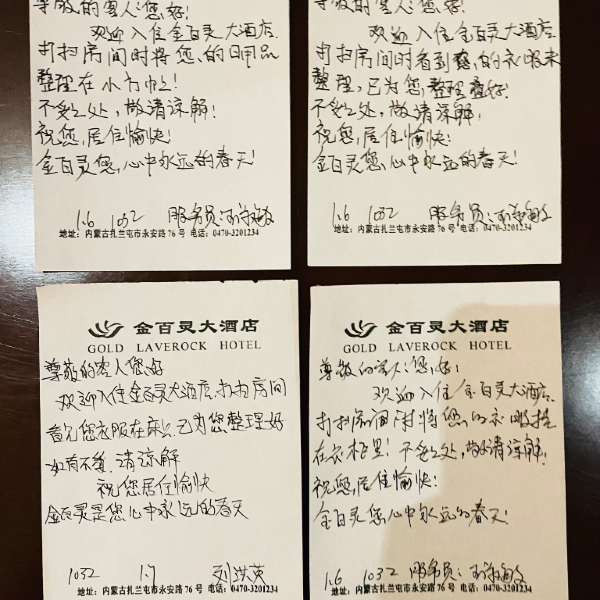 尊敬的客人:您好!
欢迎入住金百灵大酒店.
打扫房间时将您,的日用品
整理在小方巾上!
不妥之处,敬请谅解!
祝您,居住愉快!
金百灵您,心中永远的春天!
1.6 1032 服务员:
地址:内蒙古扎兰屯市永安路76号 电话:0470-3201234
尊敬的客人:您好!
欢迎入住金百灵大酒店.
打扫房间时看到您,的衣服未
整理,已为您,整理叠好!
不妥之处,敬请谅解!
祝您,居住愉快!
金百灵您,心中永远的春天!
1.6 1032 服务员:
地址:内蒙古扎兰屯市永安路76号 电话:0470-3201234
金百灵大酒店
GOLD LAVEROCK HOTEL
尊敬的客人您好
欢迎入住金百灵大酒店.打扫房间
看见您衣服在床上.已为您整理好
如有不妥.请谅解
祝您居住愉快
金百灵是您心中永远的春天
1032 1.7 刘洪英
地址:内蒙古扎兰屯市永安路76号 电话:0470-3201234
金百灵大酒店
GOLD LAVEROCK HOTEL
尊敬的客人:您,好!
欢迎入住金百灵大酒店.
打扫房间时将您,的衣服挂
在衣柜里!不妥之处,敬请谅解!
祝您,居住愉快!
金百灵您,心中永远的春天!
1.6 1032 服务员:
地址:内蒙古扎兰屯市永安路76号 电话:0470-3201234